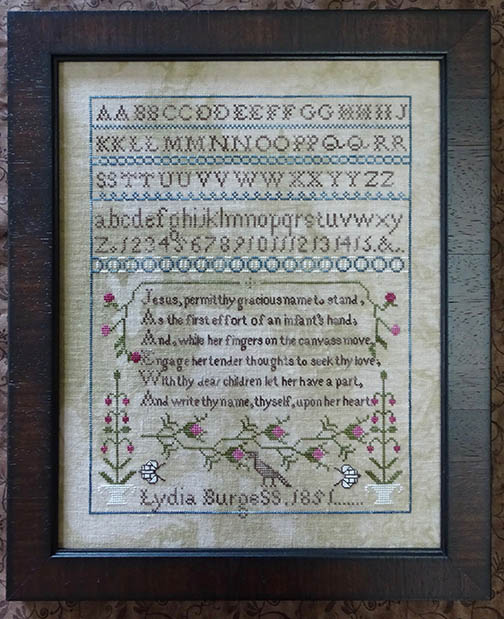 AABBCCDDEEFFGGHHIIJ
KKLLMMNNOOPPQQRR
SSTTUUVVWWXXYYZZ
abcdefghijklmnopqrstuvwxy
Z.123456789101112131415.&..
Jesus, permit thy gracious name to stand,
As the first effort of an infant's hand,
And, while her fingers on the canvass move,
Engage her tender thoughts to seek thy love,
With thy dear children let her have a part,
And write thy name, thyself, upon her heart.
Lydia Burgess.1851.......